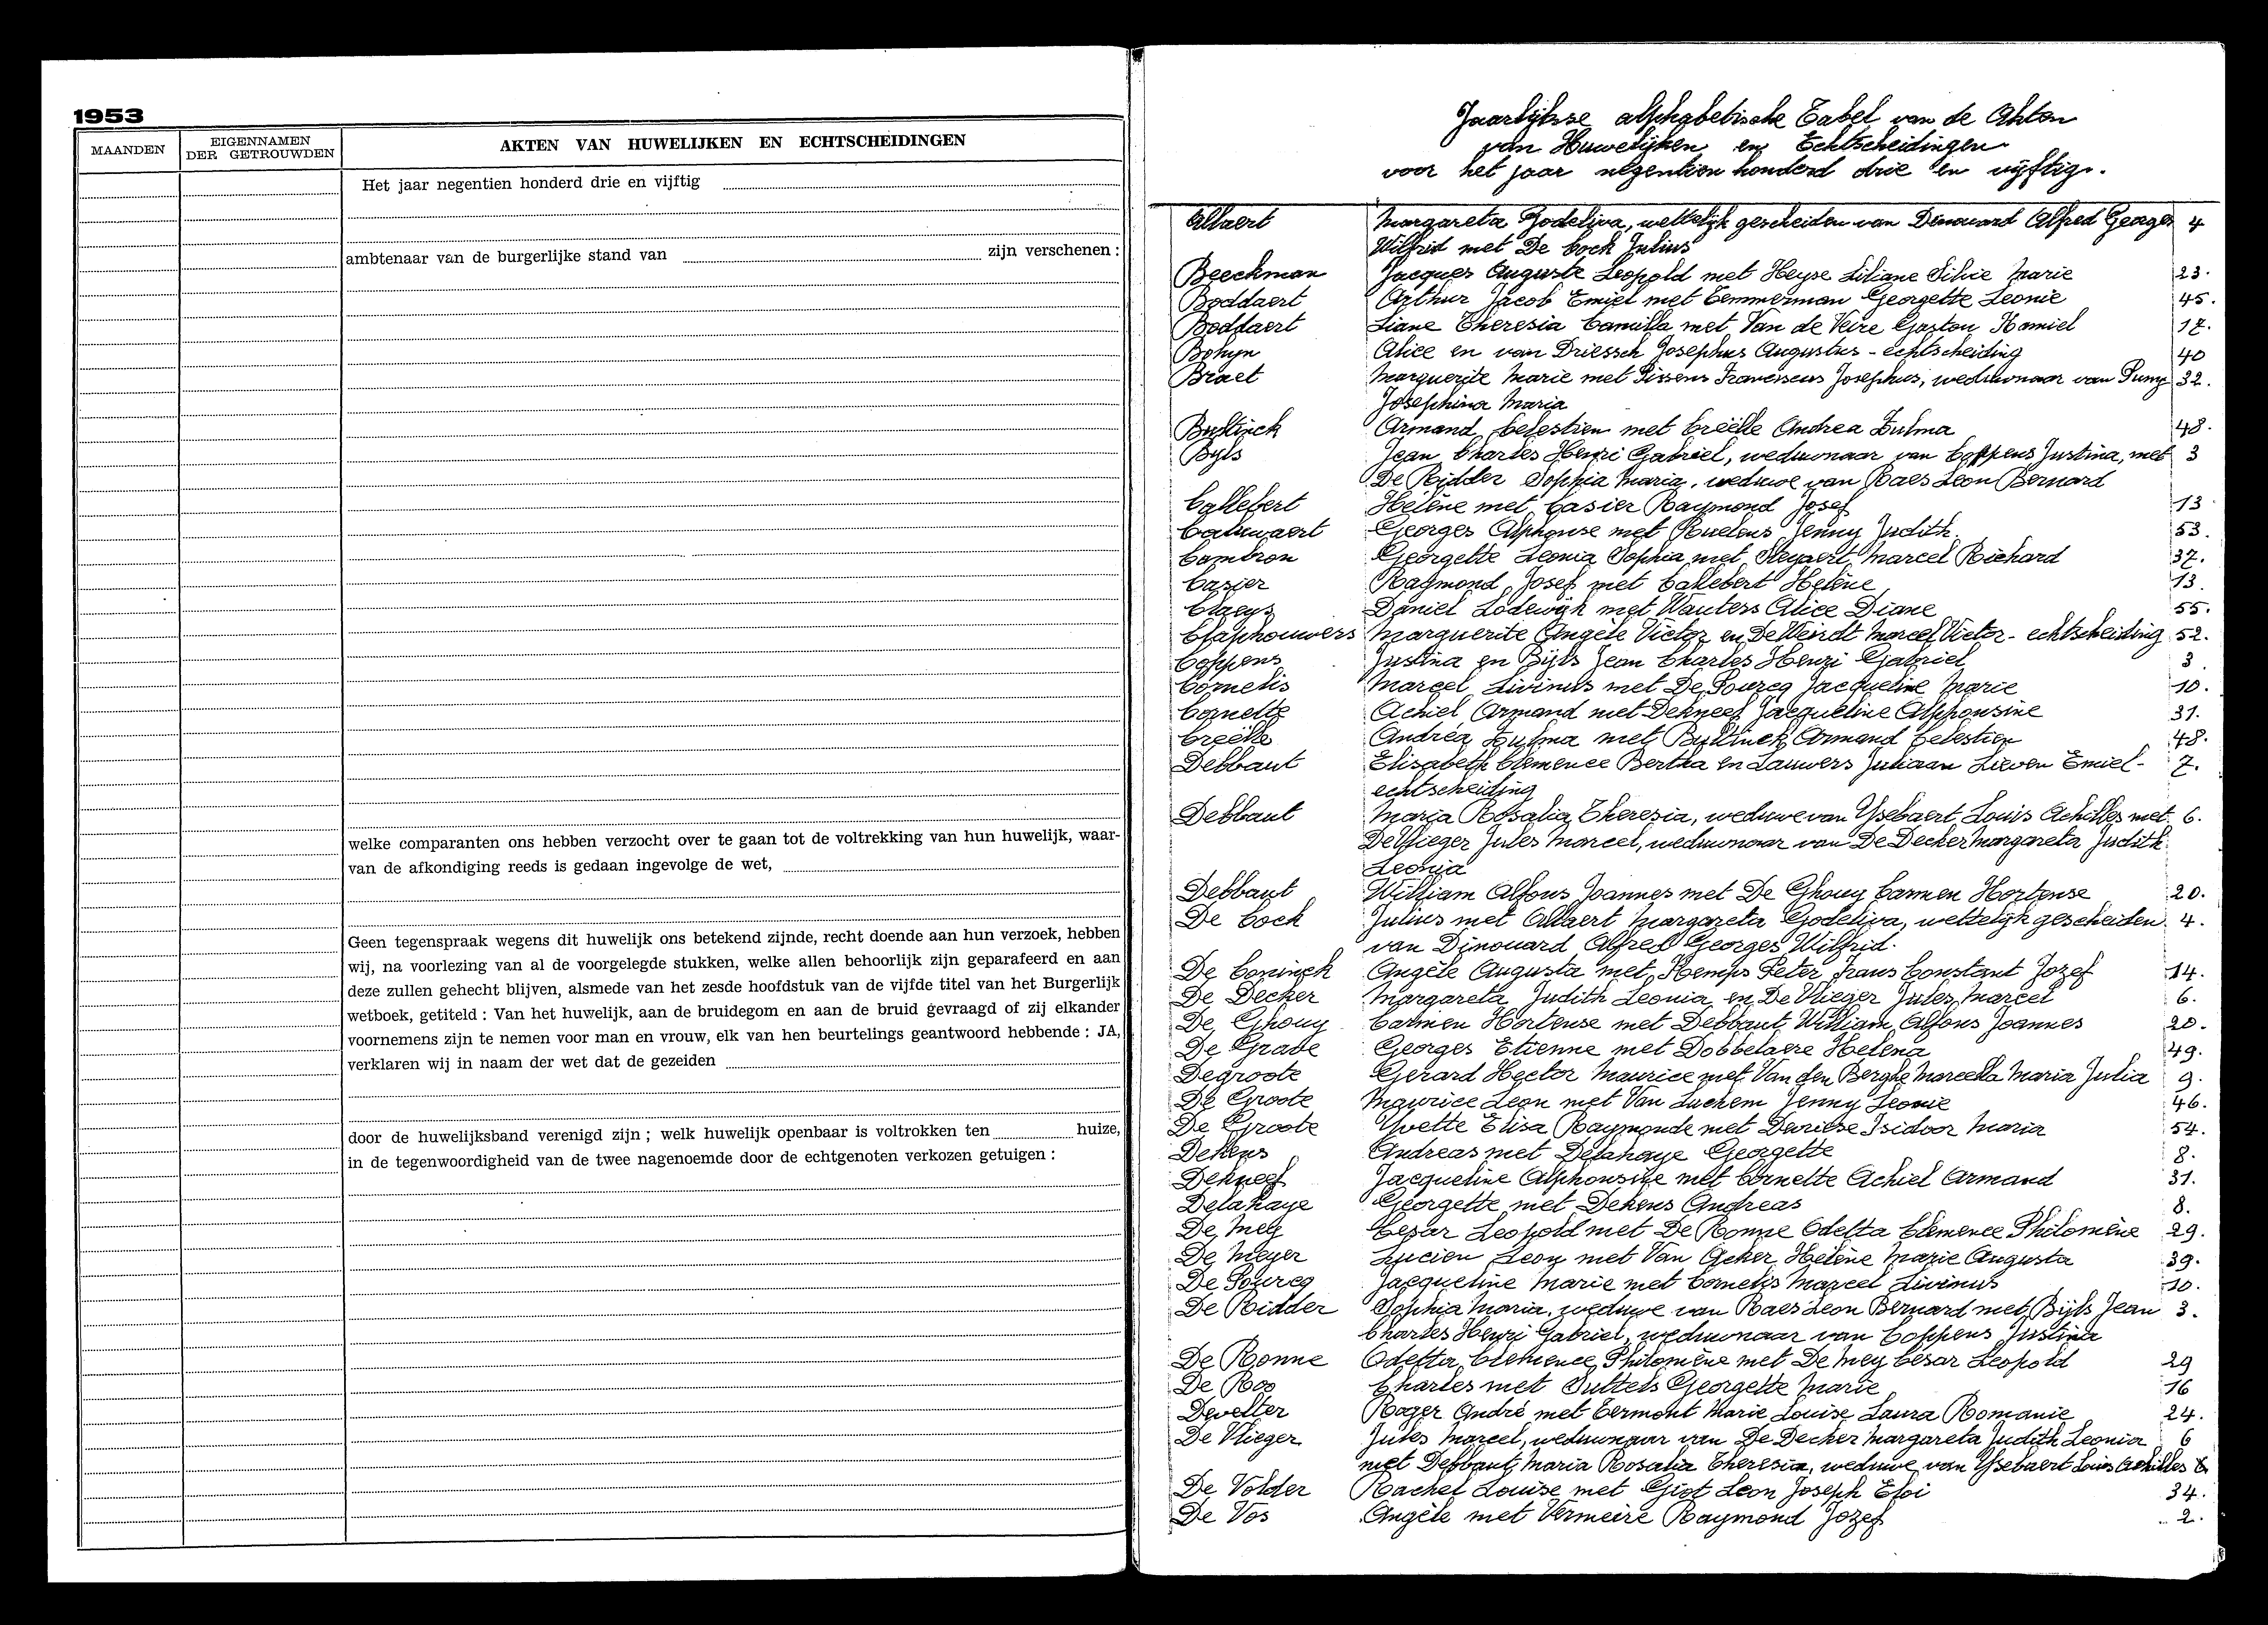 1953
MAANDEN
EIGENNAMEN
DER GETROUWDEN
AKTEN VAN HUWELIJKEN EN ECHTSCHEIDINGEN
Het jaar negentien honderd drie en vijftig
ambtenaar van de burgerlijke stand van zijn verschenen :
welke comparanten ons hebben verzocht over te gaan tot de voltrekking van hun huwelijk, waar-
van de afkondiging reeds is gedaan ingevolge de wet,
Geen tegenspraak wegens dit huwelijk ons betekend zijnde, recht doende aan hun verzoek, hebben
wij, na voorlezing van al de voorgelegde stukken, welke allen behoorlijk zijn geparafeerd en aan
deze zullen gehecht blijven, alsmede van het zesde hoofdstuk van de vijfde titel van het Burgerlijk
wetboek, getiteld : Van het huwelijk, aan de bruidegom en aan de bruid gevraagd of zij elkander
voornemens zijn te nemen voor man en vrouw, elk van hen beurtelings geantwoord hebbende : JA,
verklaren wij in naam der wet dat de gezeiden
door de huwelijksband verenigd zijn ; welk huwelijk openbaar is voltrokken ten huize,
in de tegenwoordigheid van de twee nagenoemde door de echtgenoten verkozen getuigen :
Jaarlijkse alphabetische Tabel van de Akten
van Huwelijken en Echtscheidingen
voor het jaar negentien honderd drie en vijftig.
Allaert Margareta Godeliva, wettelijk gescheiden van Dinouard Alfred Georges 4
Wilfrid met De Cock Julius
Beeckman Jacques Auguste Leopold met Heyse Liliane Silvie Marie 23.
Boddaert Arthur Jacob Emiel met Temmerman Georgette Leonie 45.
Boddaert Liane Theresia Camilla met Van de Veire Gaston Kamiel 17.
Bohyn Alice en van Driessch Josephus Augustus - echtscheiding 40
Braet Marguerite Marie met Franciscus Josephus, weduwnaar van 32.
Josephina Maria
Bultinck Armand Celestien met Creëlle Andrea Zulma 48.
Byls Jean Charles Henri Gabriel, weduwnaar van Coppens Justina, met 3
De Ridder Sophia Maria, weduwe van Raes Leon Bernard
Callebert Hélène met Casier Raymond Josef 13
Caluwaert Georges Alphonse met Ruelens Jenny Judith. 53.
Cambron Georgette Leonia Sophia met Steyaert Marcel Richard 37.
Casier Raymond Josef met Callebert Helène 13.
Claeys Daniel Lodewijk met Wauters Alice Diane 55.
Claphouwers Marguerite Angèle Victor en De Weirdt Marcel Victor - echtscheiding 52.
Coppens Justina en Bijls Jean Charles Henri Gabriel 3.
Cornelis Marcel Livinus met De Pourcq Jacqueline Marie 10.
Cornette Achiel Armand met Dekneef Jacqueline Alphonsine 31.
Creëlle Andréa Zulma met Bultinck Armand Celestien 48.
Debbaut Elisabeth Clemence Bertha en Lauwers Juliaan Lieven Emiel- 7.
echtscheiding
Debbaut Maria Rosalia Theresia, weduwe van Ysebaert Louis Achilles met 6.
De Vlieger Jules Marcel, weduwnaar van De Decker Margareta Judith
Leonia
Debbaut William Alfons Joannes met De Ghouy Carmen Hortense 20.
De Cock Julius met Allaert Margareta Godeliva, wettelijk gescheiden 4.
van Dinouard Alfred Georges Wilfrid.
De Coninck Angèle Augusta met Kemps Peter Frans Constant Jozef 14.
De Decker Margareta Judith Leonia en De Vlieger Jules Marcel 6.
De Ghouy Carmen Hortense met Debbaut William Alfons Joannes 20.
De Grave Georges Etienne met Dobbelaere Helena 49.
Degroote Gerard Hector Maurice met Van den Berghe Marcella Maria Julia 9.
De Groote Maurice Leon met Van Luchem Jenny Leonie 46.
De Groote Yvette Elisa Raymonde met Devriese Isidoor Maria 54.
Dekens Andreas met Delahaye Georgette 8.
Dekneef Jacqueline Alphonsine met Cornette Achiel Armand 31.
Delahaye Georgette met Dekens Andreas 8.
De Mey Cesar Leopold met De Ronne Odetta Clemence Philomène 29.
De Meyer Lucien Leon met Van Acker Hélène Marie Augusta 39.
De Pourcq Jacqueline Marie met Cornelis Marcel Livinus 10.
De Ridder Sophia Maria, weduwe van Raes Leon Bernard met Bijls Jean 3.
Charles Henri Gabriel, weduwnaar van Coppens Justina
De Ronne Odetta Clemence Philomène met De Mey Cesar Leopold 29
De Roo Charles met Suttels Georgette Marie 16
Develter Roger André met Termont Marie Louise Laura Romanie 24.
De Vlieger Jules Marcel, weduwnaar van De Decker Margareta Judith Leonia 6
met Debbaut Maria Rosalia Theresia, weduwe van Ysebaert Louis Achilles
De Volder Rachel Louise met Giot Leon Joseph Eloi 34.
De Vos Angèle met Vermeire Raymond Jozef 2.